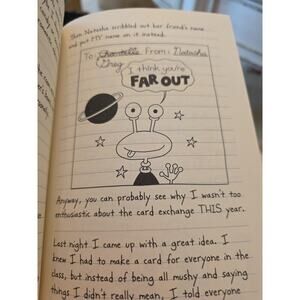 Then Natasha scribbled out her friend's name
and put MY name on it instead.
To: Chantelle From: Natasha
Greg
I think you're
FAR OUT
Anyway, you can probably see why I wasn't too
enthusiastic about the card exchange THIS year.
Last night I came up with a great idea. I
knew I had to make a card for everyone in the
class, but instead of being all mushy and saying
things I didn't really mean, I told everyone